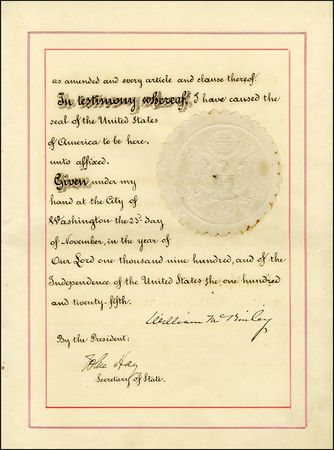 as amended and every article and clause thereof.
In testimony whereof, I have caused the
seal of the United States
of America to be here,
unto affixed.
Given under my
hand at the City of
Washington the 23d day
of November, in the year of
Our Lord one thousand nine hundred, and of the
Independence of the United States the one hundred
and twenty-fifth.
William McKinley
By the President:
John Hay
Secretary of State.